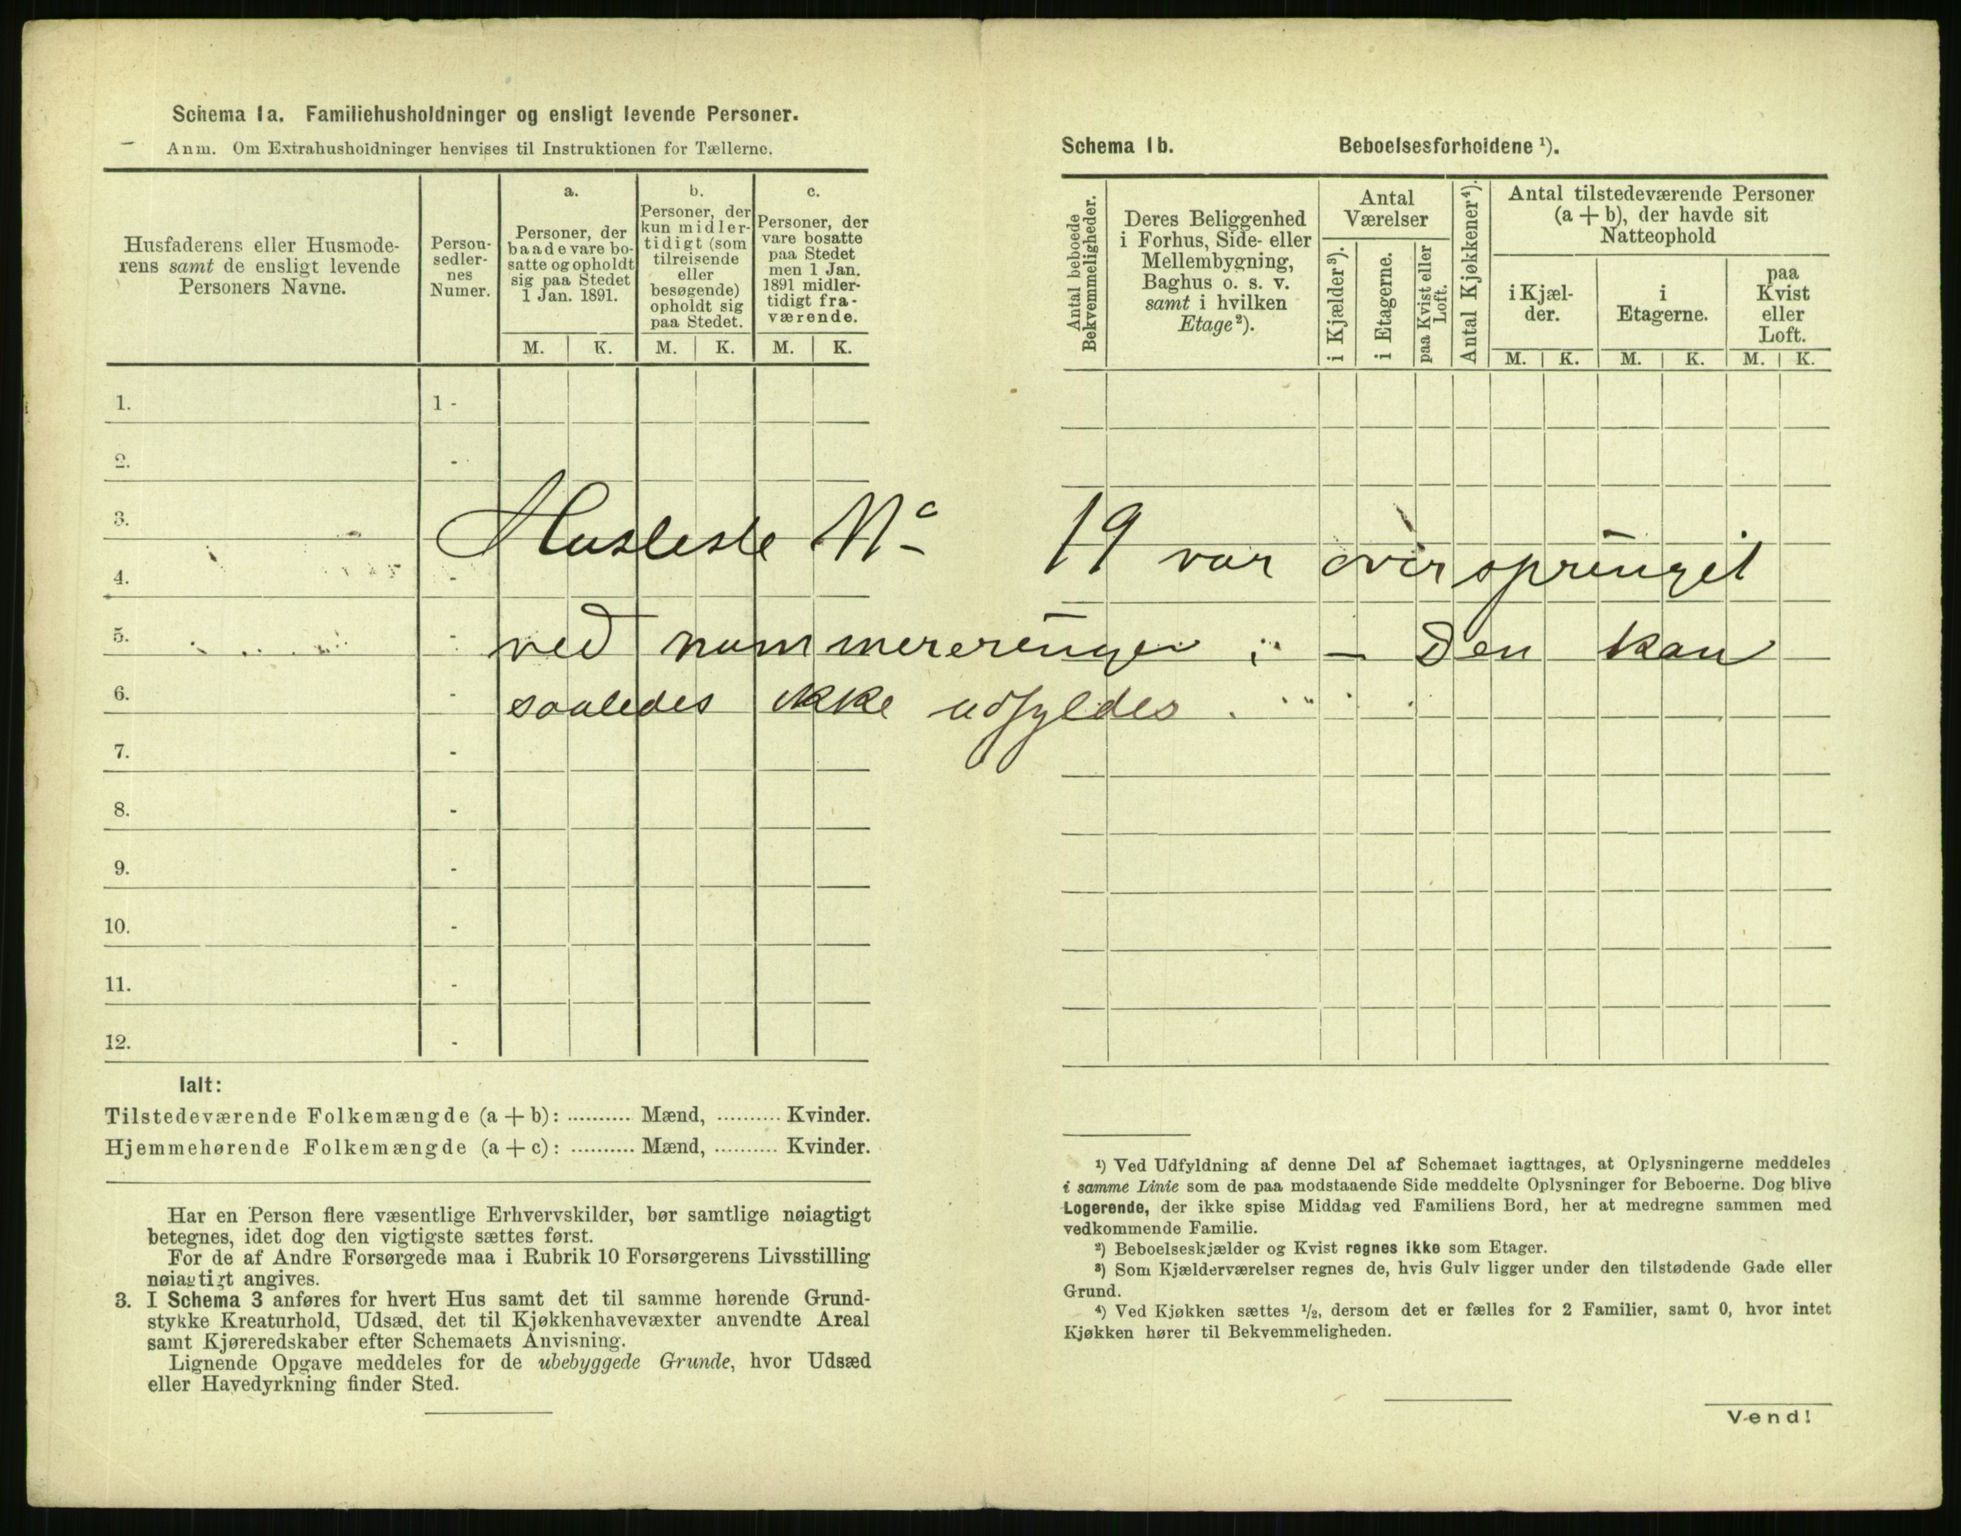 Schema 1a. Familiehusholdninger og ensligt levende Personer.
Anm. Om Extrahusholdninger henvises til Instruktionen for Tællerne.
Husfaderens eller Husmode-
rens samt de ensligt levende
Personers Navne.
Person-
sedler-
nes
Numer.
a.
Personer, der
baade vare bo-
satte og opholdt
sig paa Stedet
1 Jan. 1891.
b.
Personer, der
kun midler-
tidigt (som
tilreisende
eller
besøgende)
opholdt sig
paa Stedet.
c.
Personer, der
vare bosatte
paa Stedet
men 1 Jan.
1891 midler-
tidigt fra-
værende.
M. K. M. K. M. K.
1. 1 -
2. -
3.
4. -
5. -
6. -
7. -
8. -
9. -
10. -
11. -
12. -
Ialt:
Tilstedeværende Folkemængde (a + b): .......... Mænd, .......... Kvinder.
Hjemmehørende Folkemængde (a + c): .......... Mænd, .......... Kvinder.
Har en Person flere væsentlige Erhvervskilder, bør samtlige nøiagtigt
betegnes, idet dog den vigtigste sættes først.
For de af Andre Forsørgede maa i Rubrik 10 Forsørgerens Livsstilling
nøiagtigt angives.
3. I Schema 3 anføres for hvert Hus samt det til samme hørende Grund-
stykke Kreaturhold, Udsæd, det til Kjøkkenhavevæxter anvendte Areal
samt Kjøreredskaber efter Schemaets Anvisning.
Lignende Opgave meddeles for de ubebyggede Grunde, hvor Udsæd
eller Havedyrkning finder Sted.
Schema 1b. Beboelsesforholdene ¹).
Antal beboede
Bekvemmeligheder.
Deres Beliggenhed
i Forhus, Side- eller
Mellembygning,
Baghus o. s. v.
samt i hvilken
Etage²).
Antal
Værelser
i Kjælder³).
i Etagerne.
paa Kvist eller
Loft.
Antal Kjøkkener⁴).
Antal tilstedeværende Personer
(a + b), der havde sit
Natteophold
i Kjæl-
der.
i
Etagerne.
paa
Kvist
eller
Loft.
M. K. M. K. M. K.
Husleste No 19 var oversprunget
ved nummereringen; — Den kan
saaledes ikke udfyldes.
¹) Ved Udfyldning af denne Del af Schemaet iagttages, at Oplysningerne meddeles
i samme Linie som de paa modstaaende Side meddelte Oplysninger for Beboerne. Dog blive
Logerende, der ikke spise Middag ved Familiens Bord, her at medregne sammen med
vedkommende Familie.
²) Beboelseskjælder og Kvist regnes ikke som Etager.
³) Som Kjælderværelser regnes de, hvis Gulv ligger under den tilstødende Gade eller
Grund.
⁴) Ved Kjøkken sættes ¹/₂, dersom det er fælles for 2 Familier, samt 0, hvor intet
Kjøkken hører til Bekvemmeligheden.
Vend!